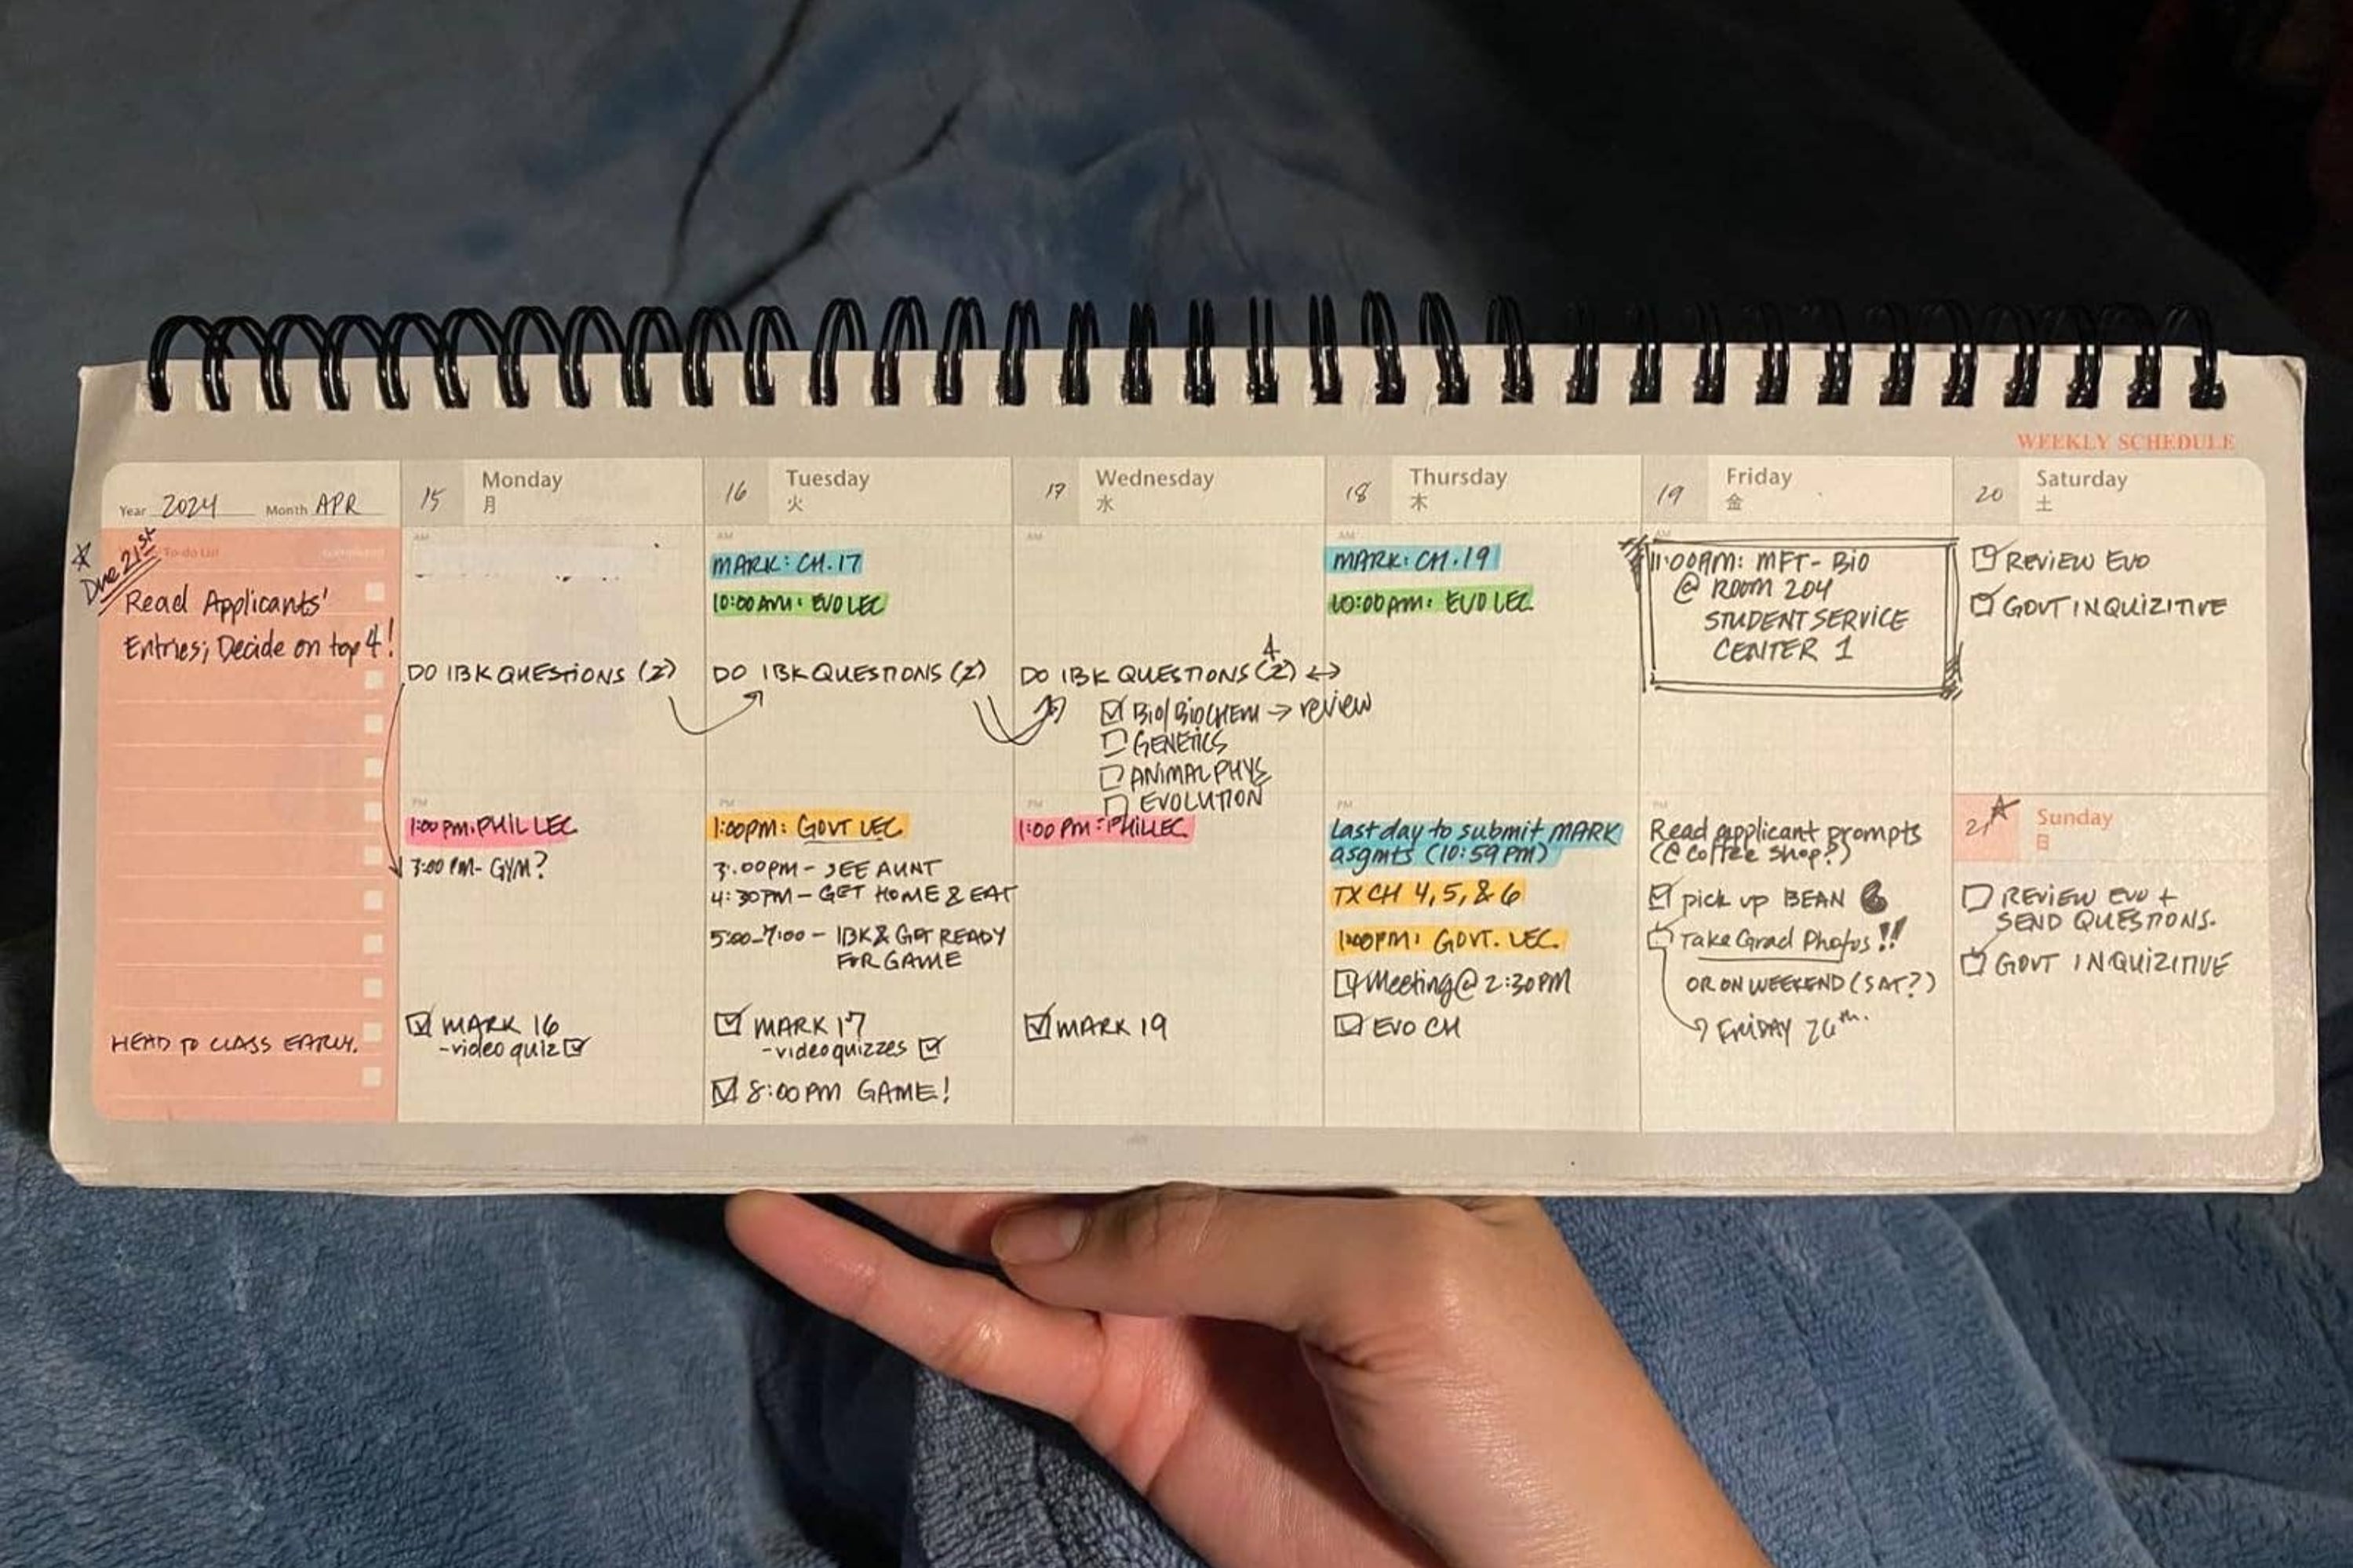 WEEKLY SCHEDULE
Year 2024 Month APR
Due 21st
To-do List
Read Applicants'
Entries; Decide on top 4!
HEAD TO CLASS EARLY.
15 Monday
月
AM
DO IBK QUESTIONS (2)
PM
1:00 PM: PHIL LEC
3:00 PM- GYM?
MARK 16
-video quiz
16 Tuesday
火
AM
MARK: CH. 17
10:00 AM: EVO LEC
DO IBK QUESTIONS (2)
PM
1:00PM: GOVT LEC
3:00PM - SEE AUNT
4:30PM - GET HOME & EAT
5:00-7:00 - IBK & GET READY
FOR GAME
MARK 17
-videoquizzes
8:00PM GAME!
17 Wednesday
水
AM
4
DO IBK QUESTIONS (2) ↔
BIO/BIOCHEM → review
GENETICS
ANIMAL PHYS
EVOLUTION
PM
1:00 PM: PHIL LEC
MARK 19
18 Thursday
木
AM
MARK: CH. 19
10:00AM: EVO LEC
PM
Last day to submit MARK
asgmts (10:59PM)
TX CH 4, 5, & 6
1:00PM: GOVT. LEC.
Meeting @ 2:30PM
EVO CH
19 Friday
金
AM
11:00AM: MFT- BIO
@ ROOM 204
STUDENT SERVICE
CENTER 1
PM
Read applicant prompts
(@ coffee shop?)
pick up BEAN
Take Grad Photos!!
OR ON WEEKEND (SAT?)
→ FRIDAY 26th.
20 Saturday
土
REVIEW EVO
GOVT INQUIZITIVE
21 Sunday
日
REVIEW EVO +
SEND QUESTIONS.
GOVT INQUIZITIVE